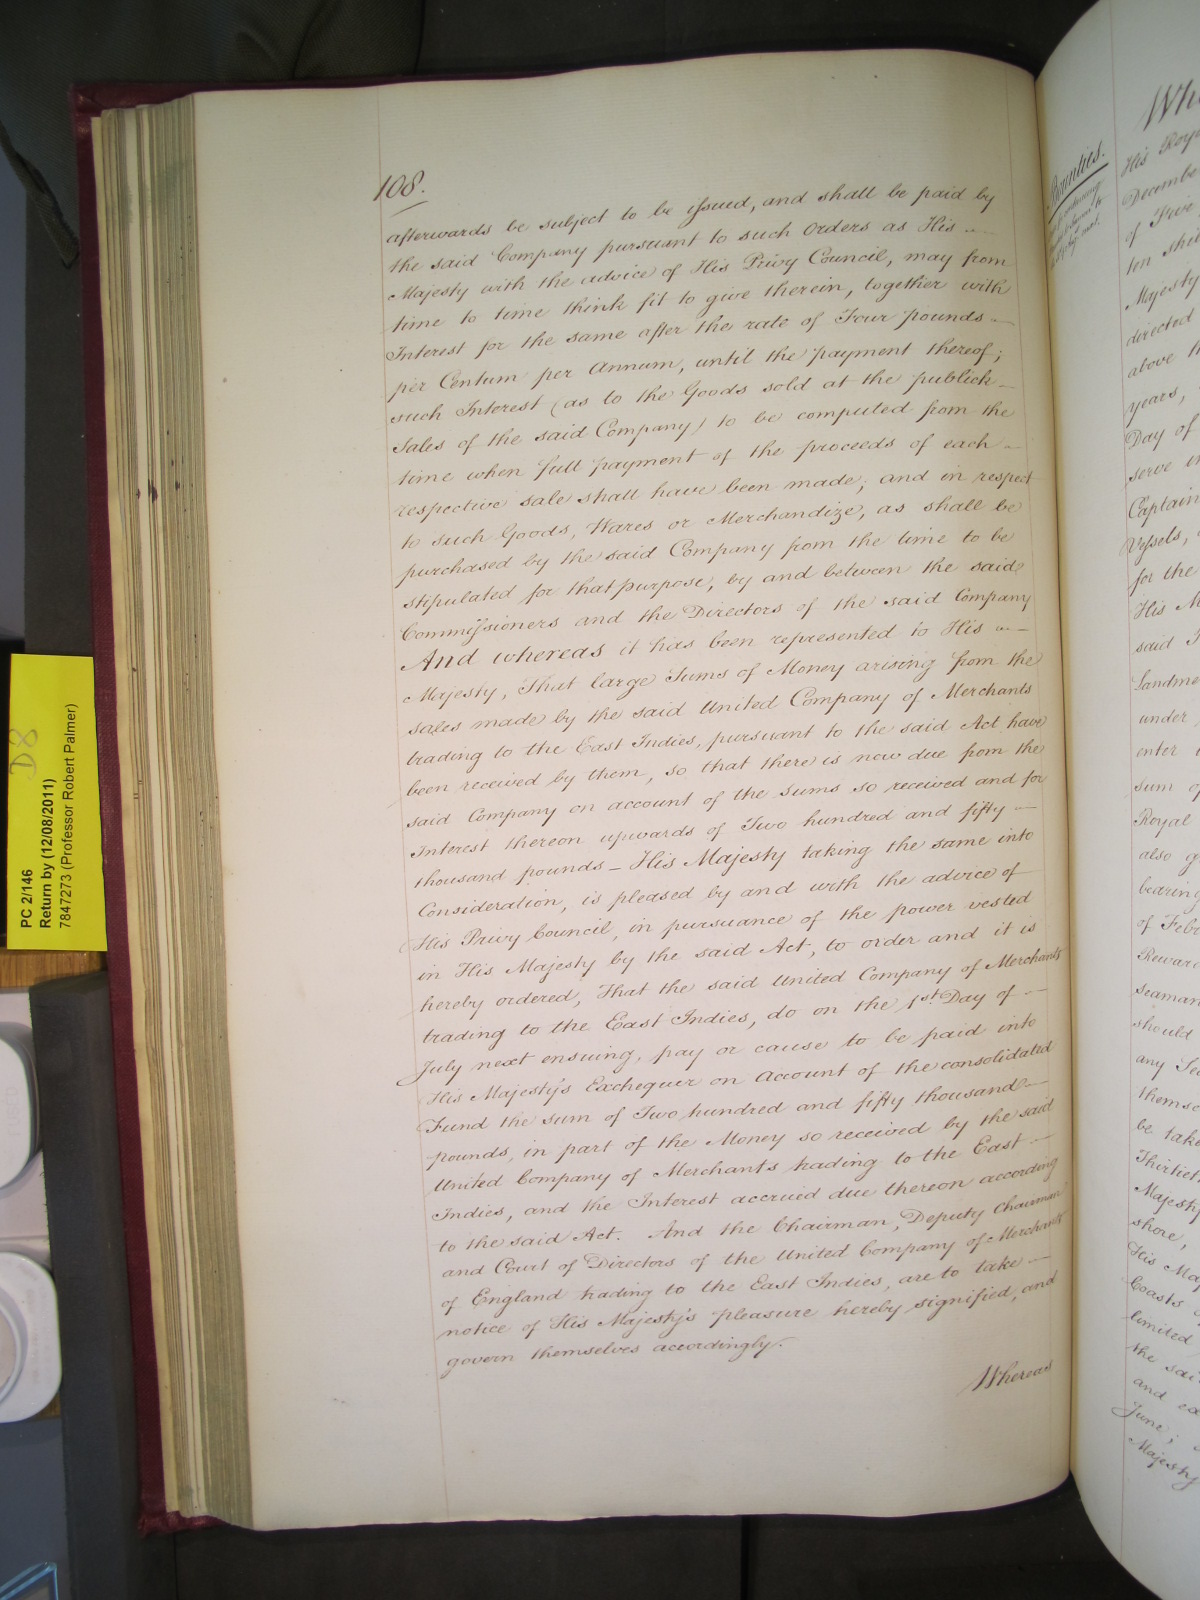 108.
afterwards be subject to be issued, and shall be paid by
the said Company pursuant to such Orders as His
Majesty with the advice of His Privy Council, may from
time to time think fit to give therein, together with
Interest for the same after the rate of Four pounds
per Centum per Annum, until the payment thereof;
such Interest (as to the Goods sold at the publick
Sales of the said Company) to be computed from the
time when full payment of the proceeds of each
respective sale shall have been made; and in respect
to such Goods, Wares or Merchandize, as shall be
purchased by the said Company from the time to be
stipulated for that purpose, by and between the said
Commissioners and the Directors of the said Company
And whereas it has been represented to His
Majesty, That large Sums of Money arising from the
sales made by the said United Company of Merchants
trading to the East Indies, pursuant to the said Act have
been received by them, so that there is now due from the
said Company on account of the sums so received and for
Interest thereon upwards of Two hundred and fifty
thousand pounds – His Majesty taking the same into
Consideration, is pleased by and with the advice of
His Privy Council, in pursuance of the power vested
in His Majesty by the said Act, to order and it is
hereby ordered, That the said United Company of Merchants
trading to the East Indies, do on the 1st Day of
July next ensuing, pay or cause to be paid into
His Majesty's Exchequer on Account of the consolidated
Fund the sum of Two hundred and fifty thousand
pounds, in part of the Money so received by the said
United Company of Merchants trading to the East
Indies, and the Interest accrued due thereon according
to the said Act. And the Chairman, Deputy Chairman
and Court of Directors of the United Company of Merchants
of England trading to the East Indies, are to take
notice of His Majesty's pleasure hereby signified, and
govern themselves accordingly.
Whereas
PC 2/146
Return by (12/08/2011)
7847273 (Professor Robert Palmer)
D8
Bounties.
His Roy
Decembe
of Five
ten shi
Majesty
directed
above th
years,
Day of
serve in
Captain
Vessels,
for the
His M
said
Landme
under
enter
sum of
Royal
also g
bearing
of Feb
Reward
seaman
should
any Se
themse
be take
Thirtieth
Majesty
shore,
His Ma
Coasts
limited
the sai
and ex
June;
Majesty